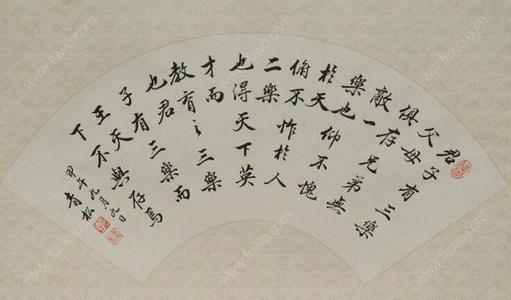 君子有三樂
父母
俱存兄弟無
故一
樂也仰不愧
於天
俯不怍於人
二樂
也得天下英
才而
教育之三樂
也君
子有三樂而
王天
下不與存焉
甲午九月九日
青松